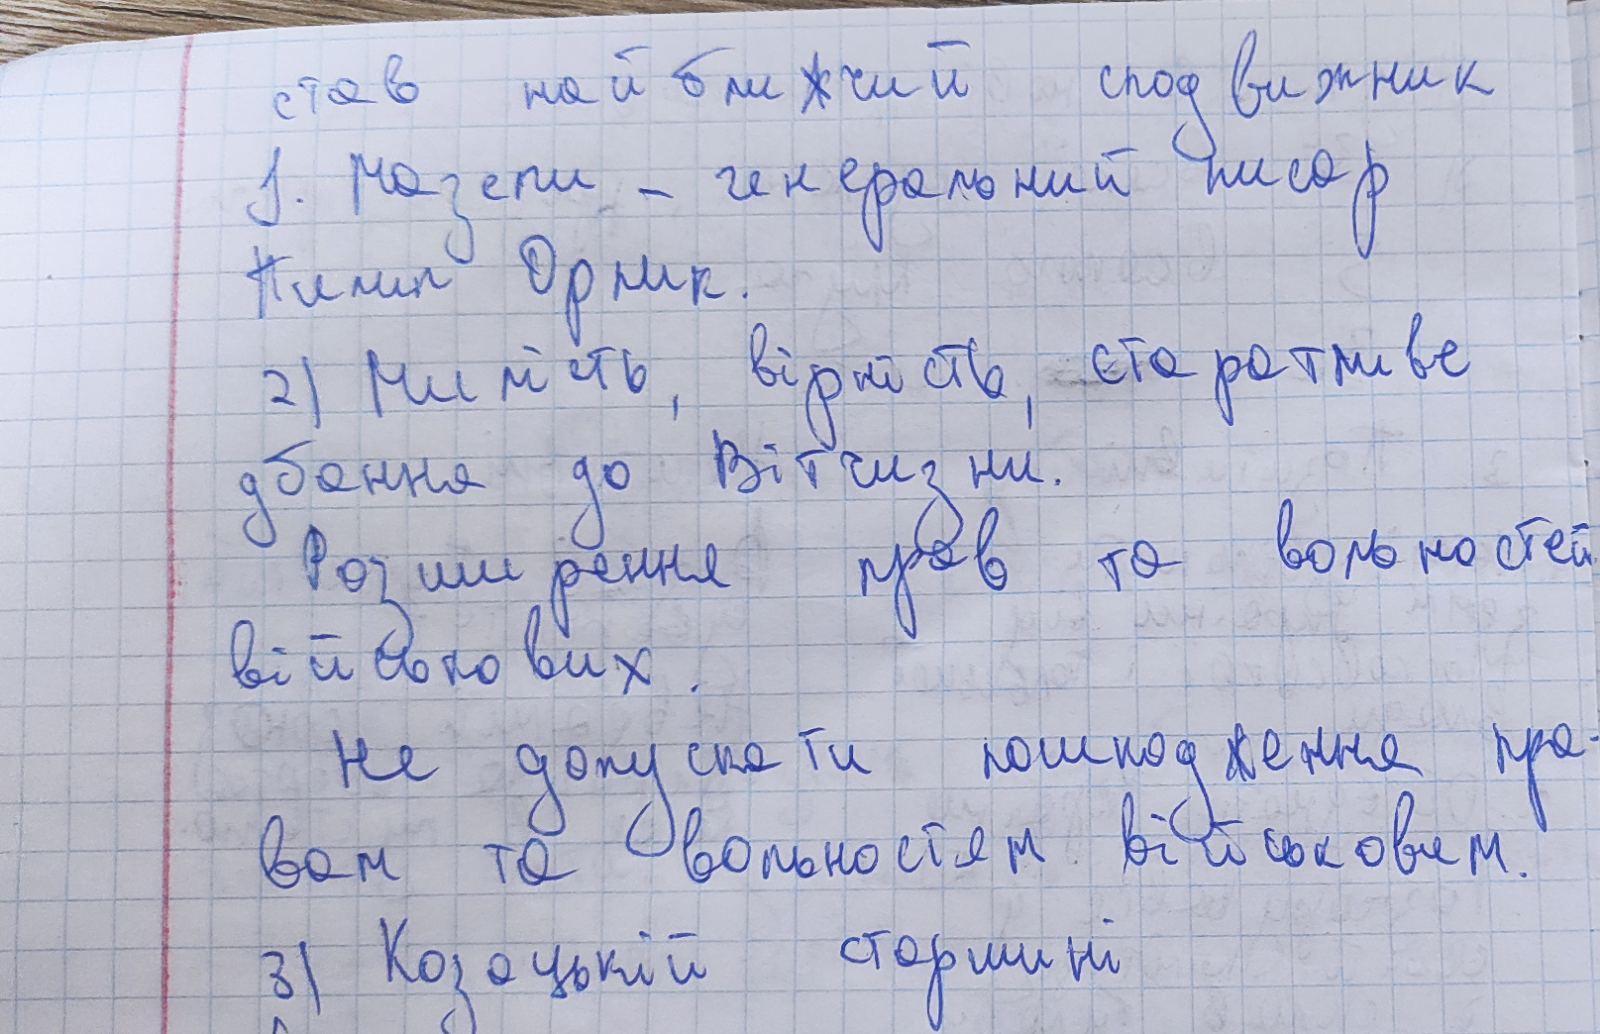 став найближчий сподвижник
І. Мазепи - генеральний писар
Пилип Орлик.
2) Милість, вірність, старатливе
дбання до Вітчизни.
Розширення прав та вольностей
військових.
Не допускати пошкодження пра-
вам та вольностям військовим.
3) Козацькій старшині